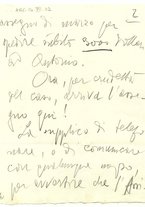 2
assegno di mezzo per
spedire subito 5000 dollari
ad Antonio.
Ora, per
del caso, arriva l'asse-
gno qui!
La supplico di telefo-
nare, o di comunicare
con qualunque mezzo,
per avvertire che l'